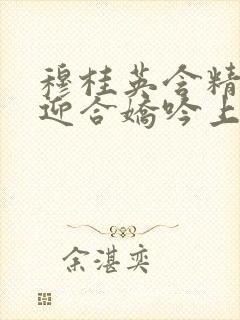 穆桂英含精
迎合嬌吟上
余湛奕